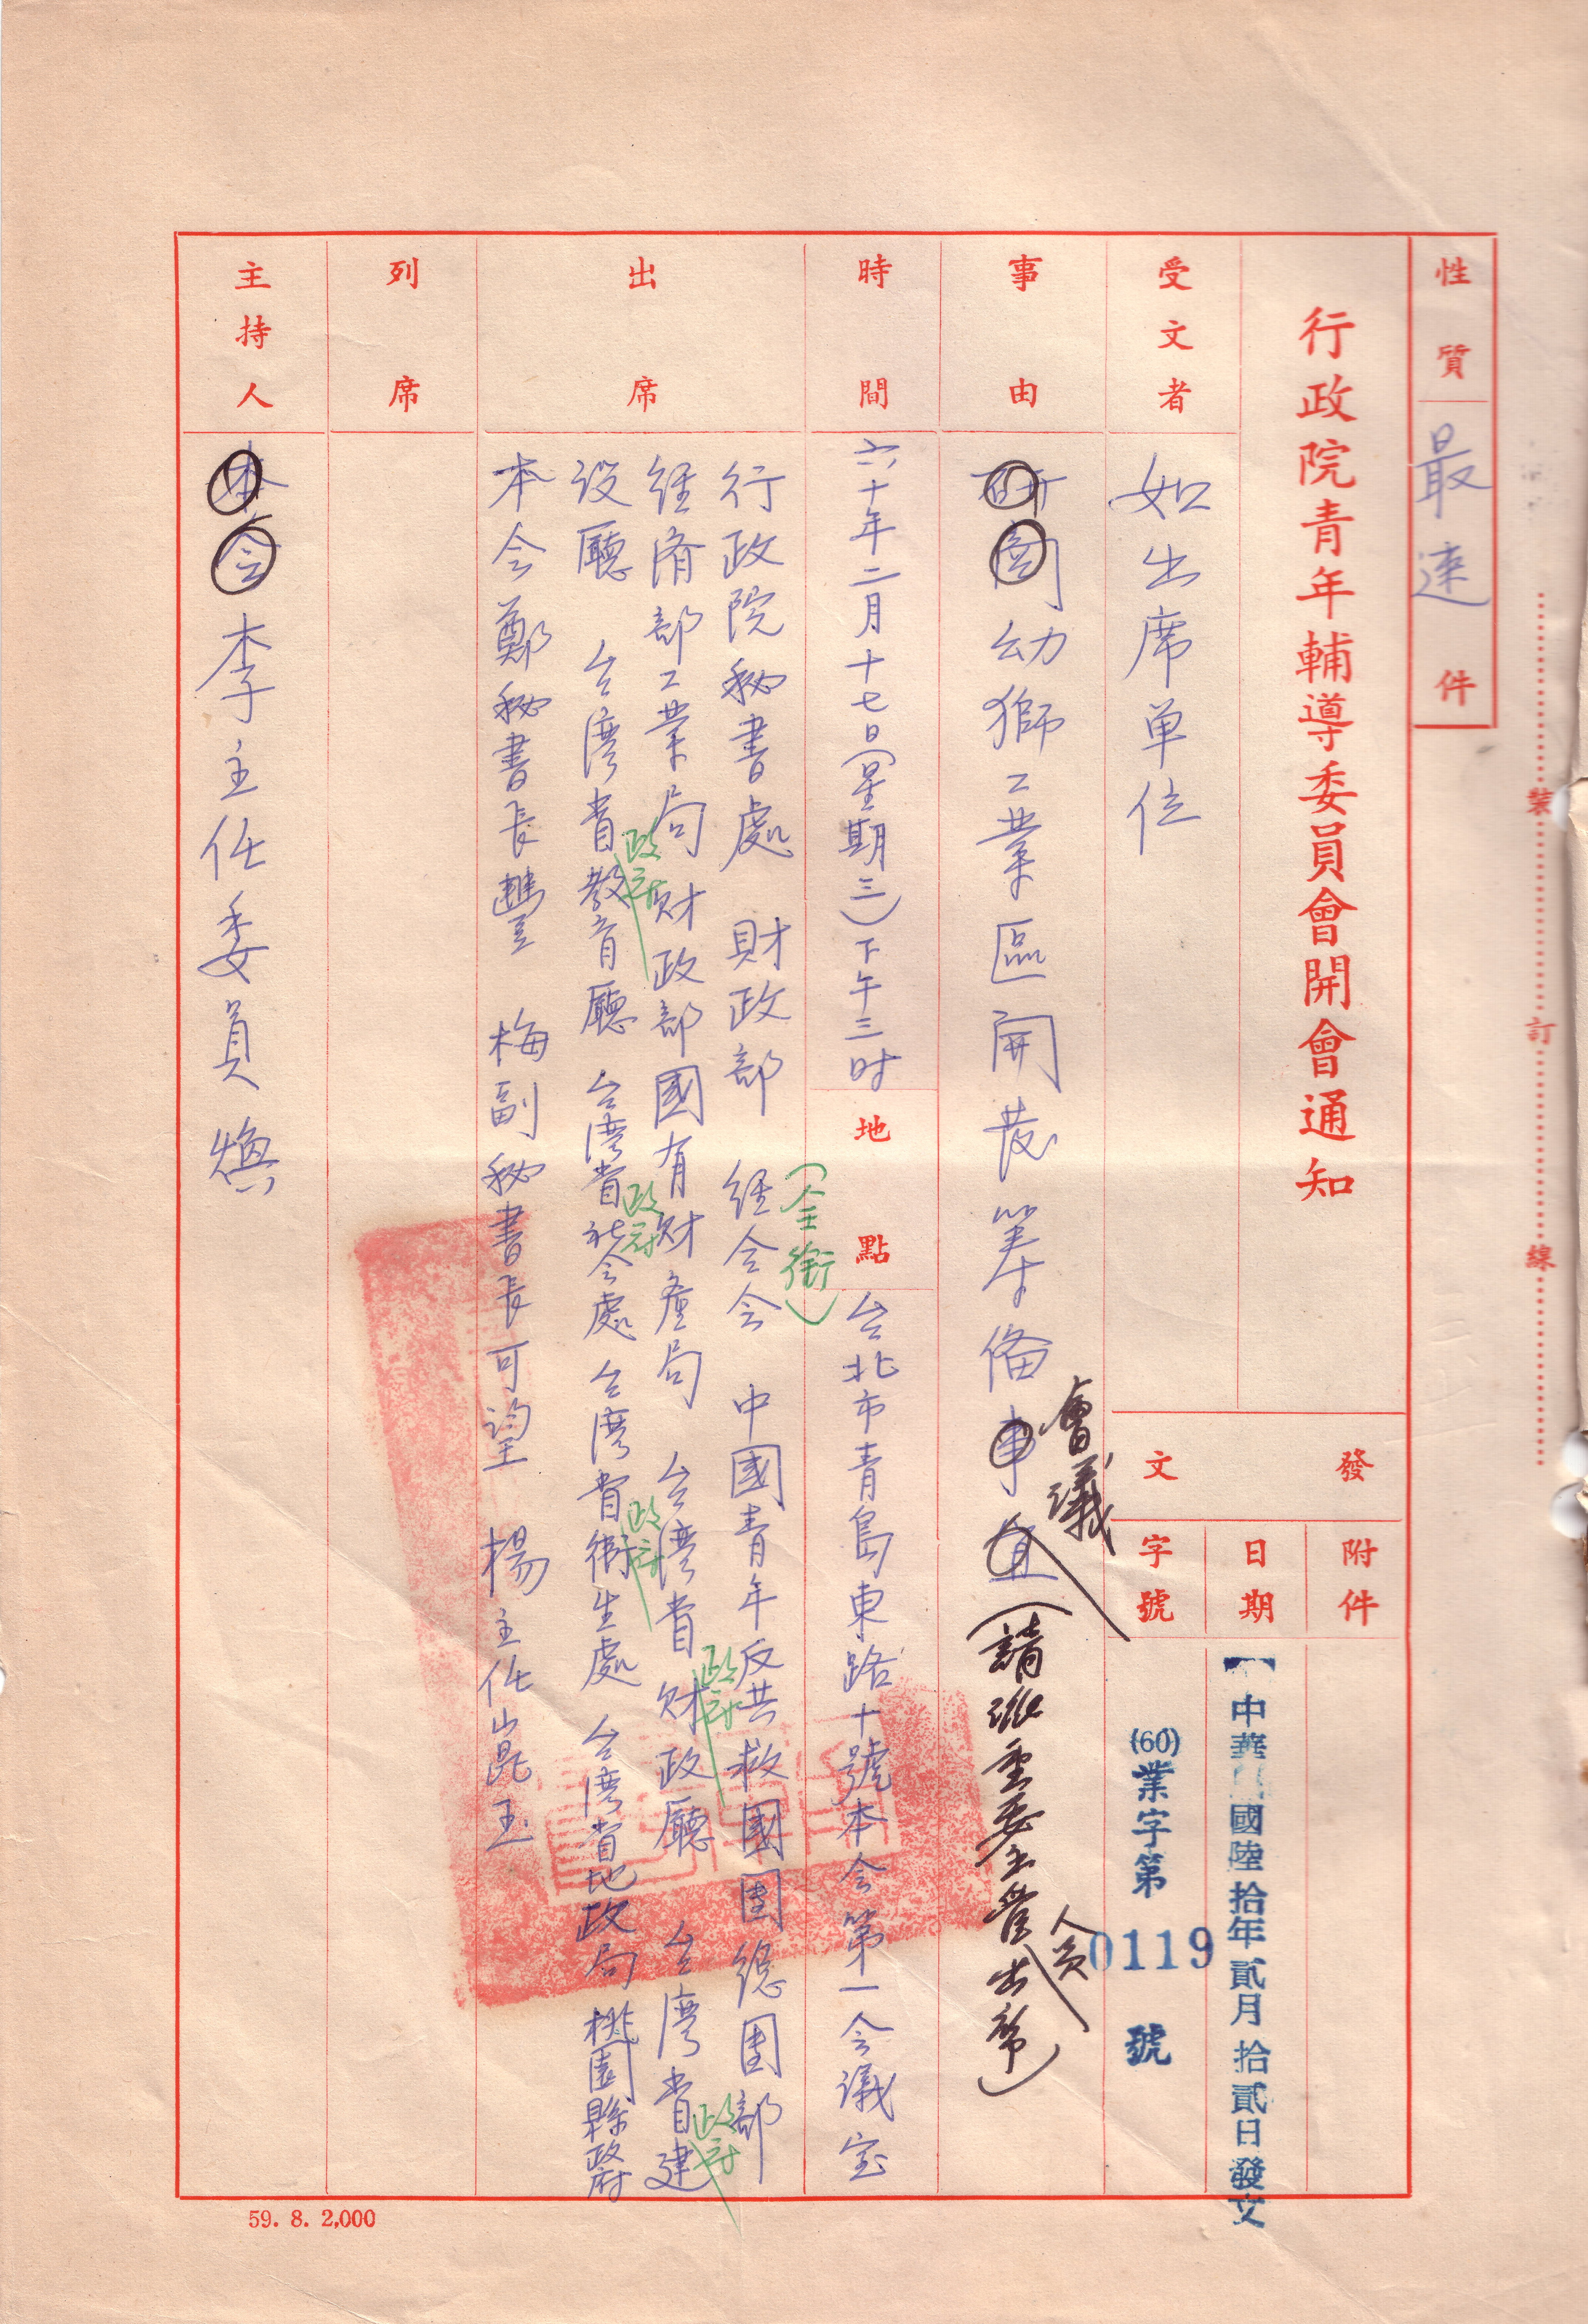 性質 最速件
裝訂線
行政院青年輔導委員會開會通知
發文
附件
日期
中華國陸拾年貳月拾貳日發文
字號
(60)業字第0119號
受文者
如出席單位
事由
研商幼獅工業區開發籌備事宜
會議
(請派重要主管出席)
人員
時間
六十年二月十七日(星期三)下午三时
地點
台北市青島東路十號本会第一会議室
出席
(全銜)
行政院秘書處 財政部 経合会 中國青年反共救國團總团部
経济部工業局 财政部國有财產局 台湾省财政廳 台湾省建
政府
政府
設廳 台湾省教育廳 台湾省社会處 台湾省衛生處 台湾省地政局 桃園縣政府
政府
政府
政府
本会鄭秘書長豐 梅副秘書長可望 楊主任崑玉
列席
主持人
本会李主任委員煥
59. 8. 2,000